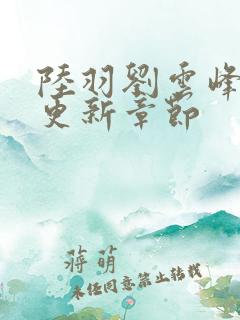 陸羽劉雲峰
更新章節
蔣萌
未經同意禁止轉載